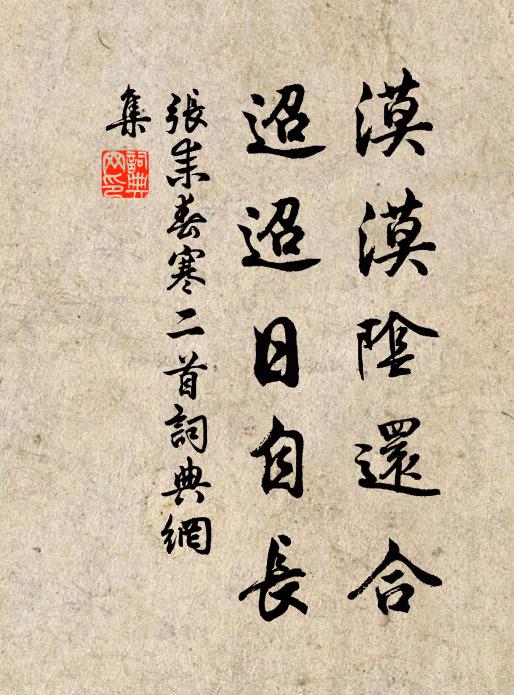 漠漠陰還合
迢迢日自長
張耒春寒二首詞典網
集
詞典
网印